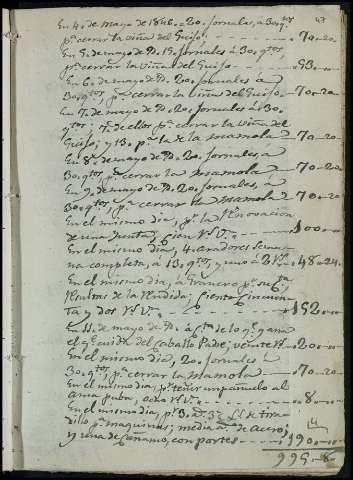 47
En 4. de mayo de 1846. 20. jornales, á 30 qtos
pa. cerrar la viña del Guijo. 70-20-
En 5. de mayo de Do. 15. jornales á 30. qtos,
pa. cerrar la viña del Guijo 53-0-
En 6. de mayo de Do. 20. jornales á
30. qtos, pa. cerrar la viña del Guijo. 70-20-
En 7. de mayo de Do. 20. jornales á 30.
qtos, 7. de ellos pa. cerrar la viña del
Guijo, y 13. pa. la de la mamola 70-20-
En 8. de mayo de Do. 20. jornales, á
30. qtos, pa. cerrar la mamola 70-20-
En 9. de mayo de Do. 20. jornales, á
30. qtos, pa. cerrar la mamola 70-20-
En el mismo dia, pr. la renovacion
de una junta, cien rs. vn. 100-00-
En el mismo dia, 4. cavadores sema-
na completa, á 13. qtos, y uno á 2 rs. 48-24-
En el mismo dia, á pr.
resultas de la Vendida; ciento cincuen-
ta y dos rs. vn. 152-00-
En 11. de mayo de Do. á cta. de lo qe. gana
el qe. cuida del caballo Padre; veinte rs. 20-00-
En el mismo dia, 20. jornales á
30. qtos, pa. cerrar la mamola 70-20-
En el mismo dia, pr. teñir un pañuelo al
ama pubra, ocho rs. vn. 8-00-
En el mismo dia, pr. 3. as. 3. ls. de tira-
dillo pa. maquinas; media a. de acero;
y una de cañamo, con portes 190-00-
995-8-